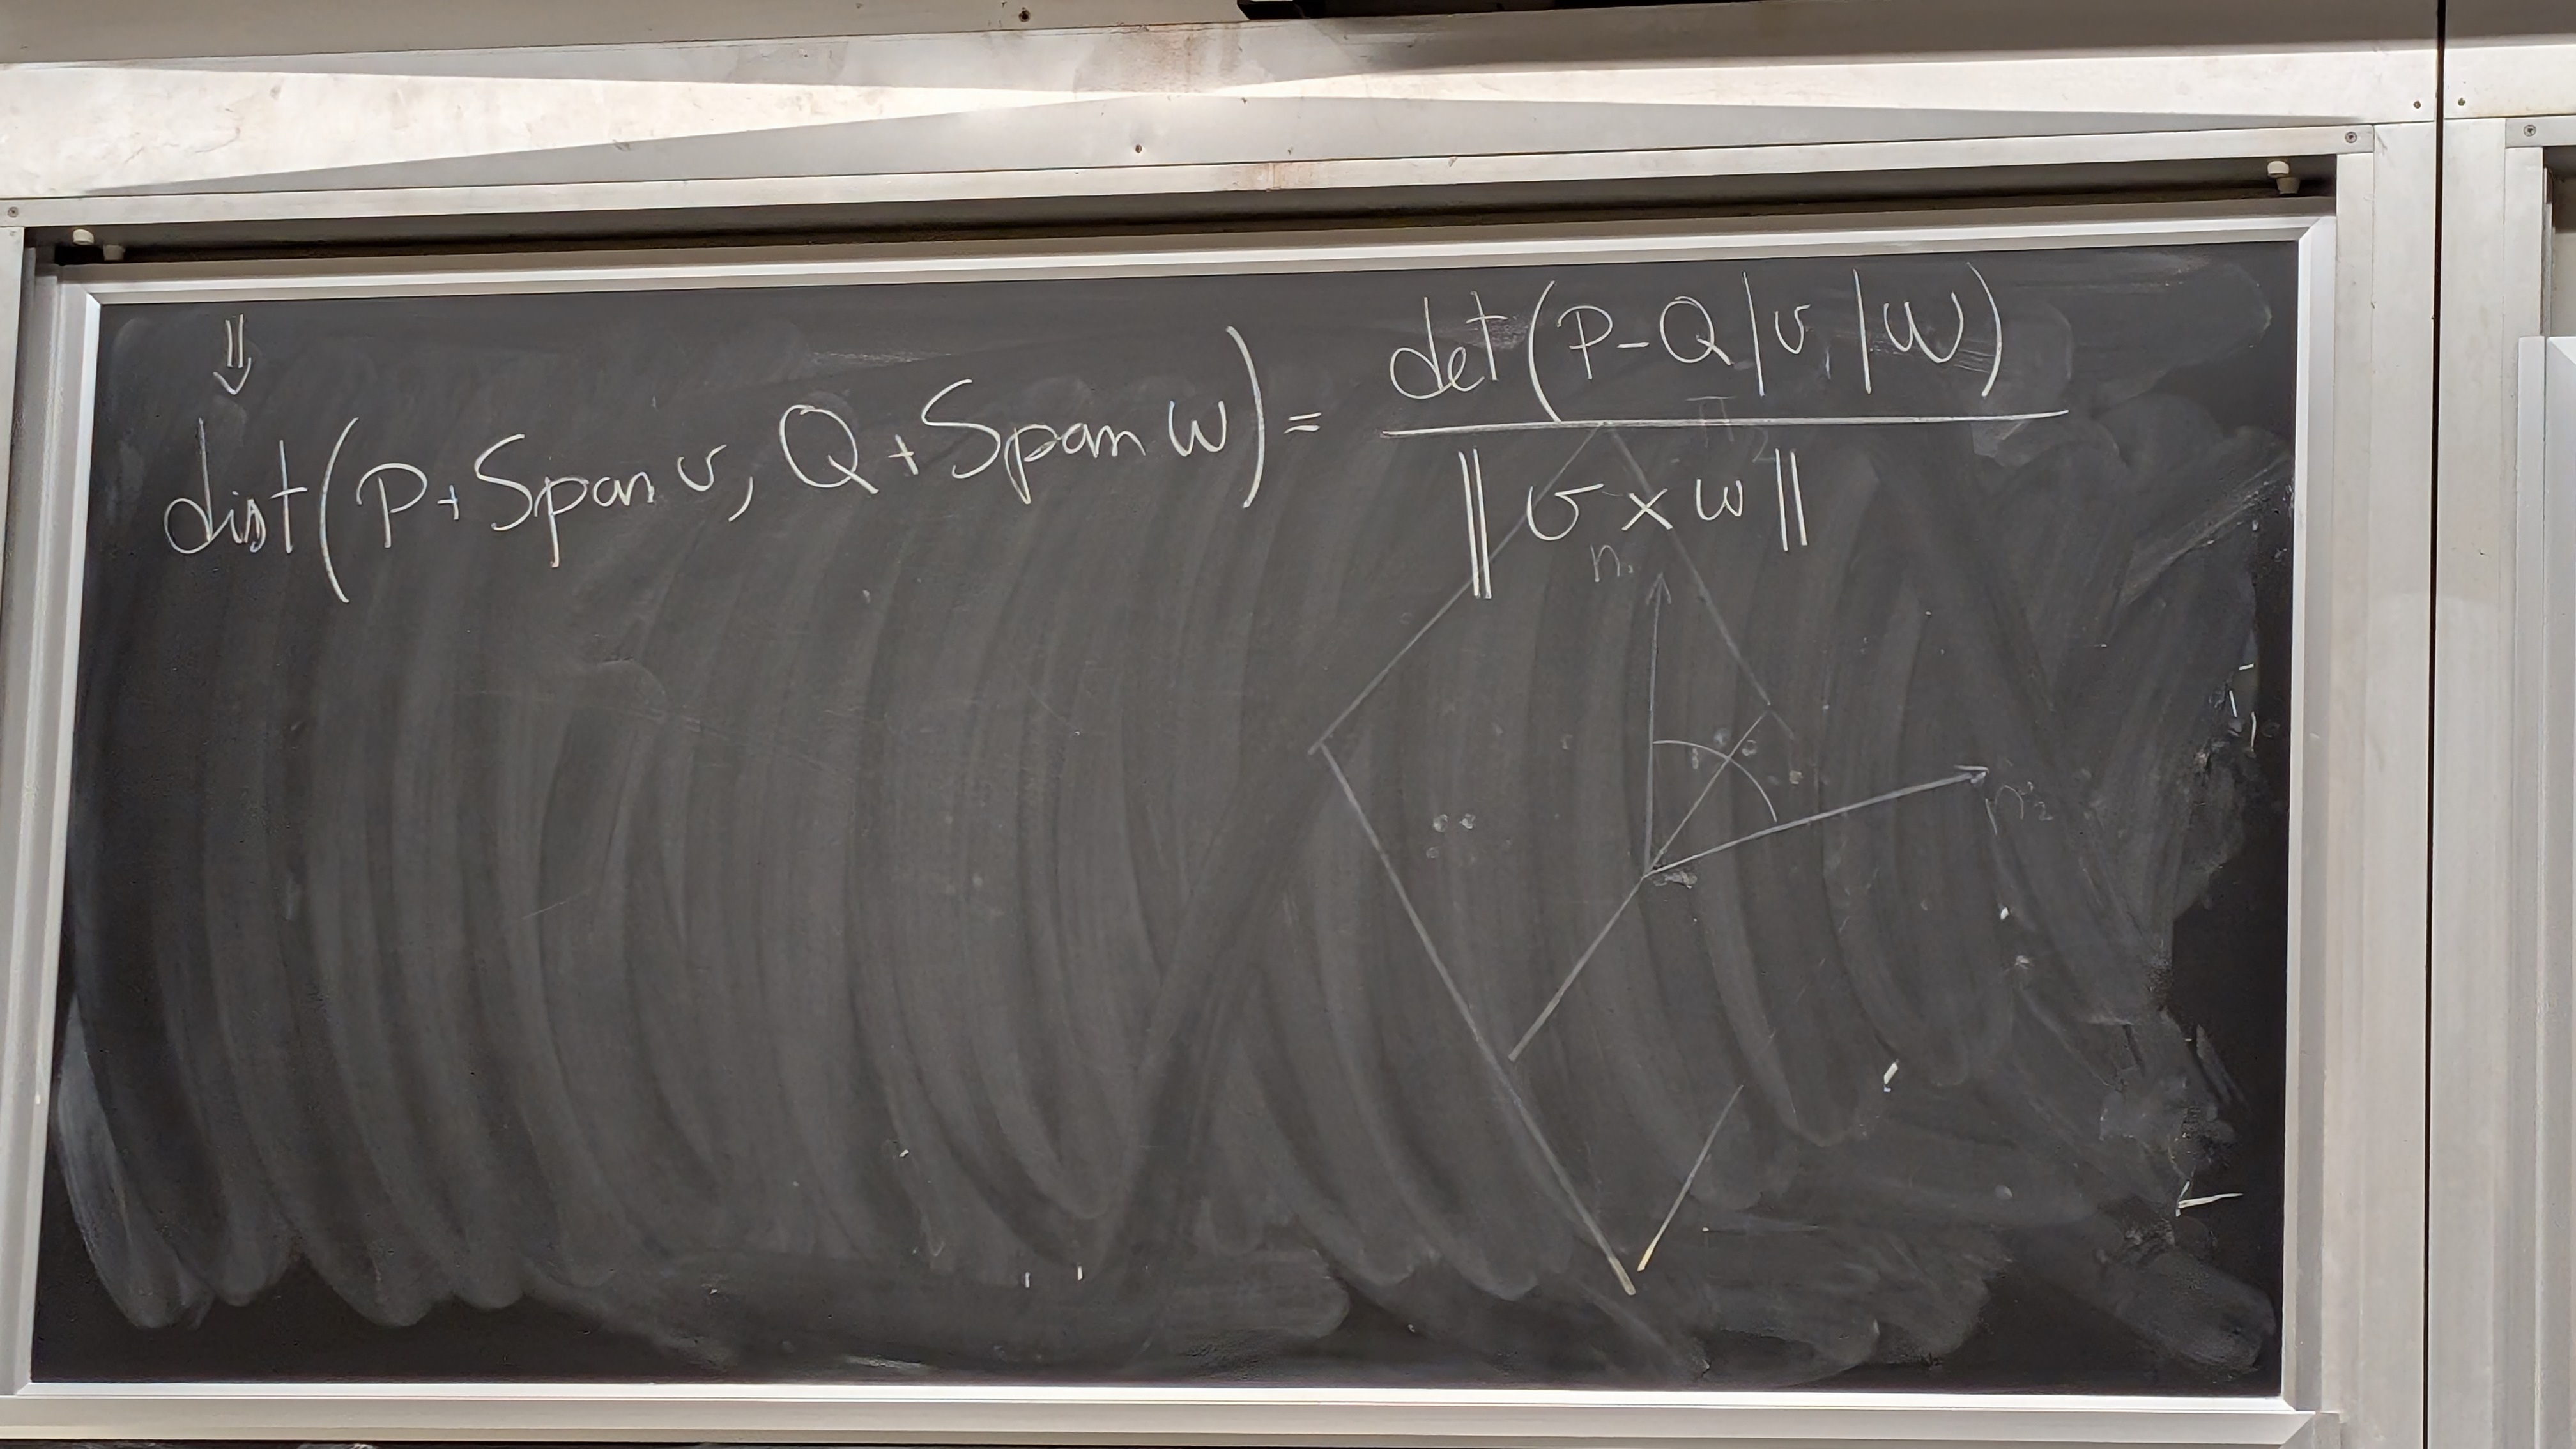 ⇓
dist(P+Span v, Q+Span w) = det(P-Q|v|w) / ‖v×w‖
Π₂
n₁
n₂